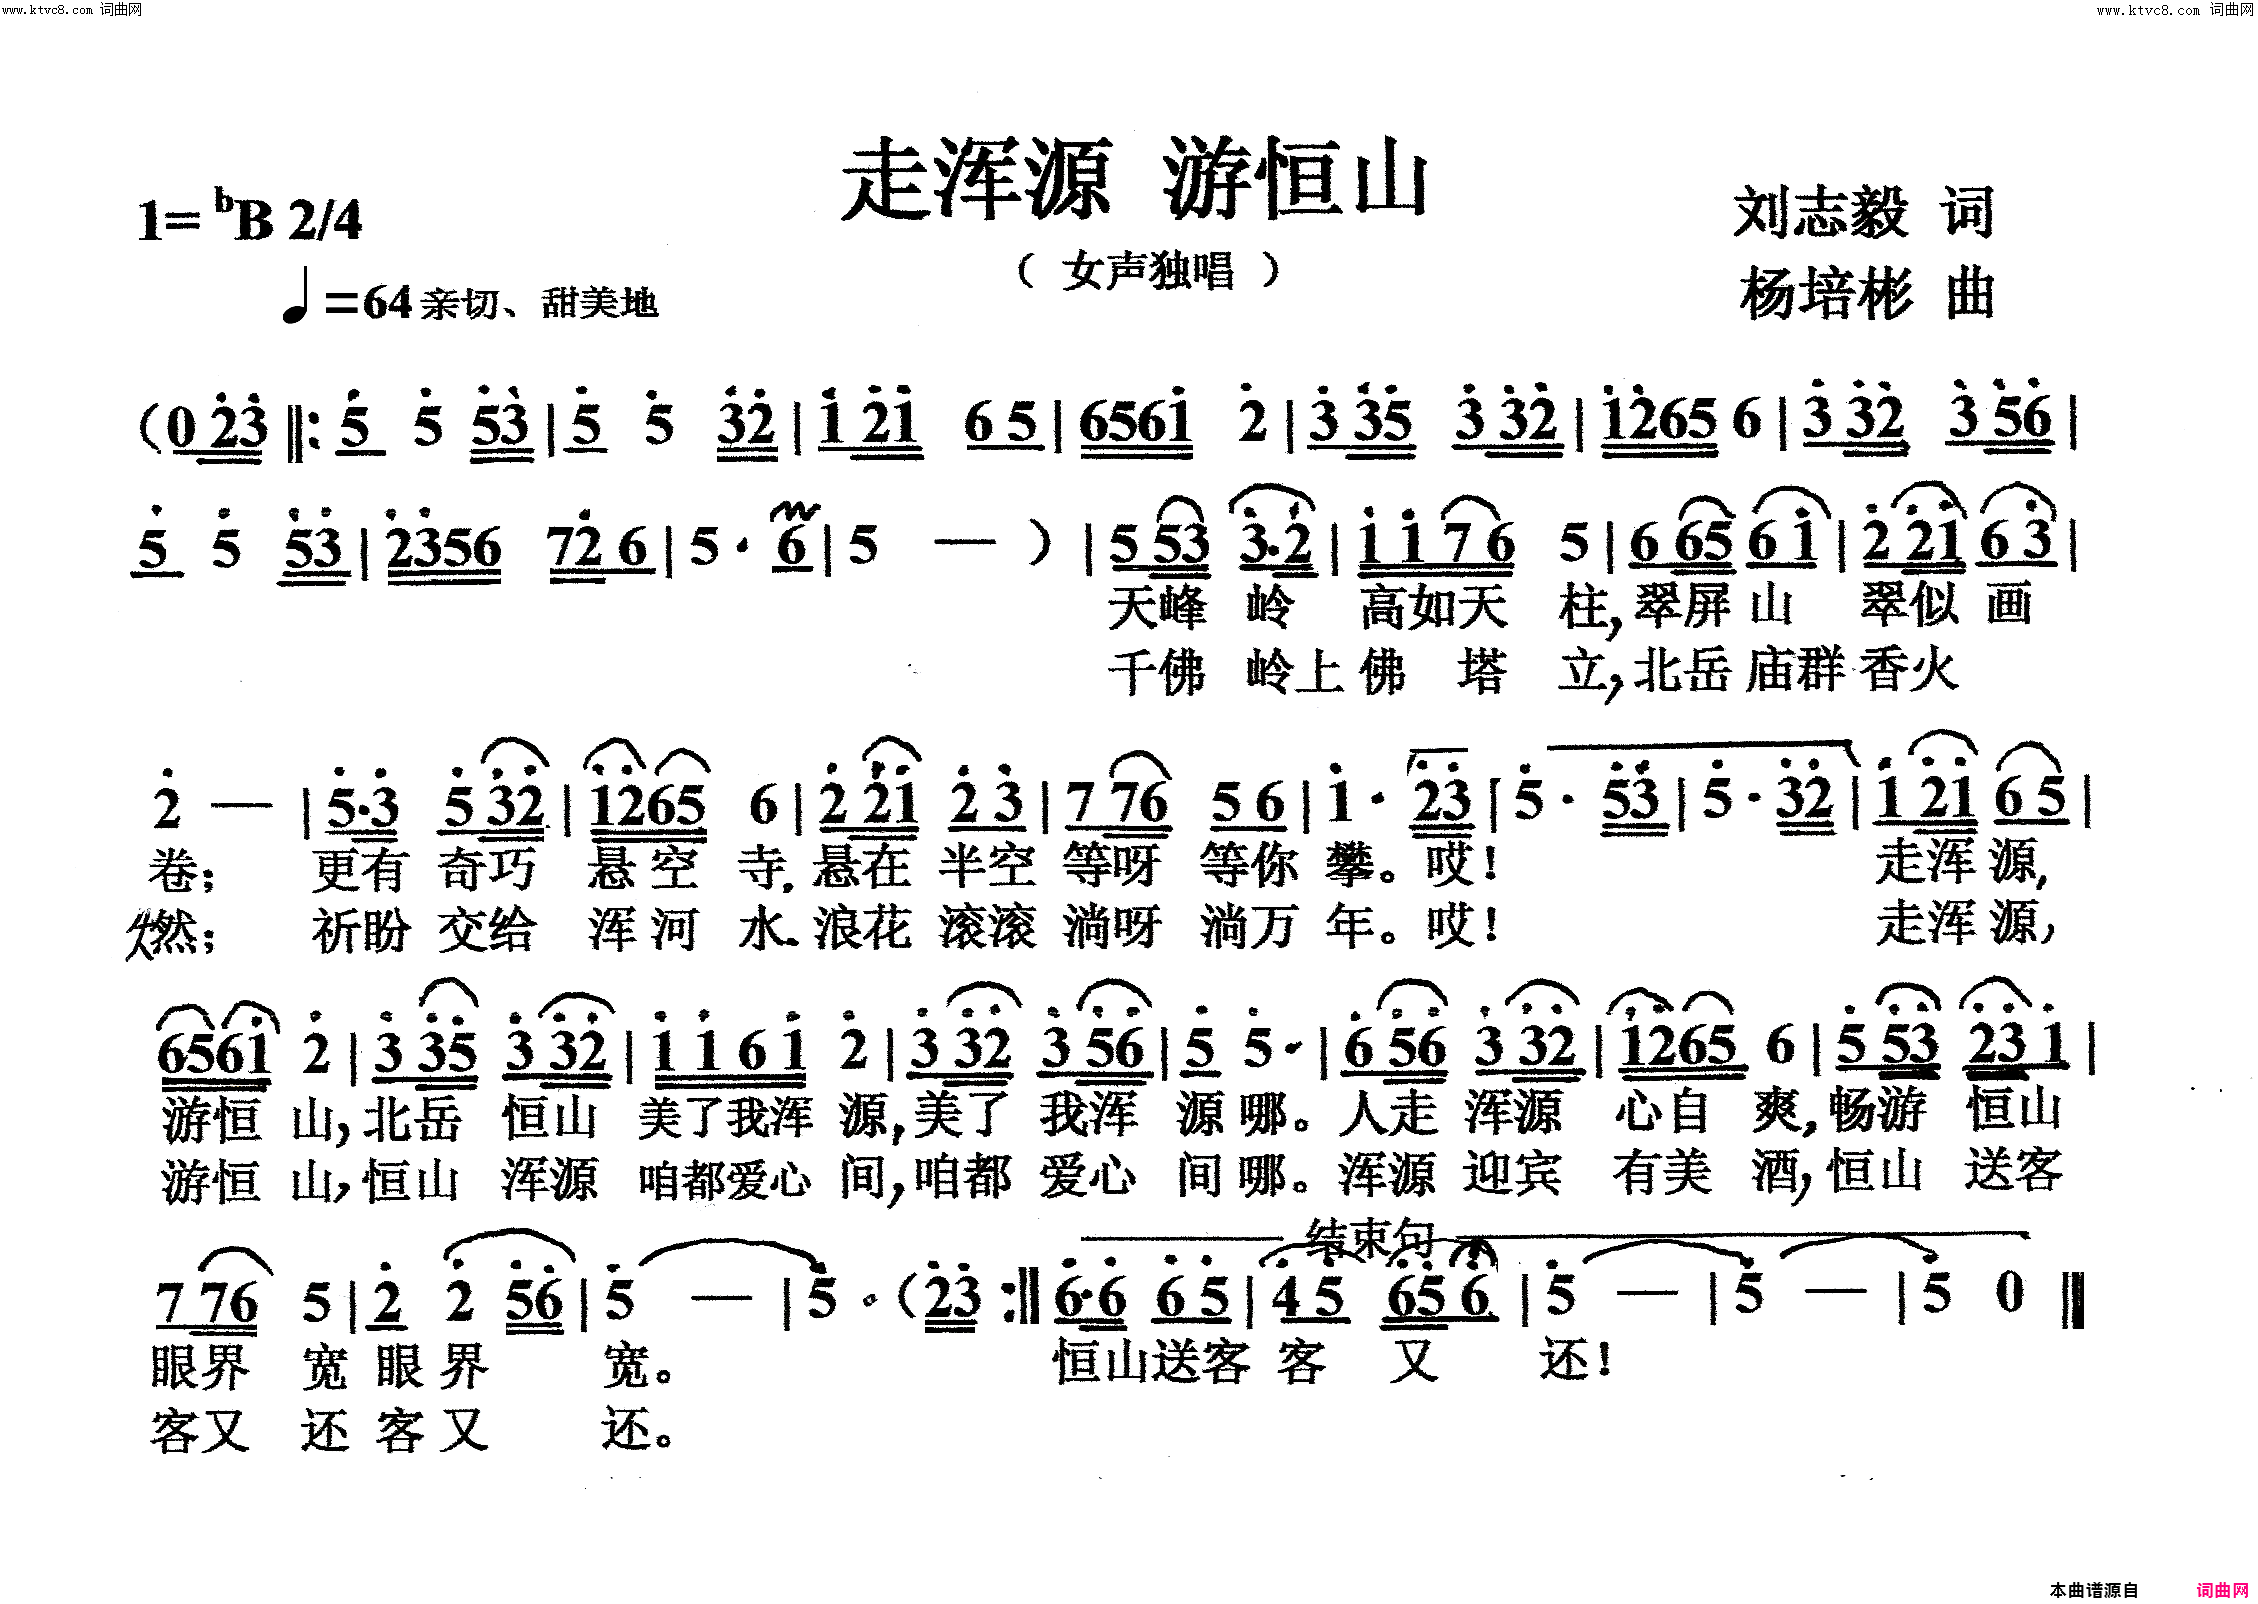 www.ktvc8.com 词曲网
www.ktvc8.com 词曲网
走浑源 游恒山
(女声独唱)
1=bB 2/4
♩=64 亲切、甜美地
刘志毅 词
杨培彬 曲
(0 2̇3̇ ‖: 5̇ 5̇ 5̇3̇ | 5̇ 5̇ 3̇2̇ | 1̇ 2̇1̇ 6 5 | 6561̇ 2̇ | 3̇ 3̇5̇ 3̇ 3̇2̇ | 1̇2̇65 6 | 3̇ 3̇2̇ 3̇ 5̇6̇ |
5̇ 5̇ 5̇3̇ | 2̇3̇56 72̇ 6 | 5· 6 | 5 — ) | 5 53 3̇·2̇ | 1̇ 1̇ 7 6 5 | 6 65 6 1̇ | 2̇ 2̇1̇ 6 3̇ |
天峰 岭 高如天 柱,翠屏 山 翠似 画
千佛 岭上 佛 塔 立,北岳 庙群 香火
2̇ — | 5̇·3̇ 5̇ 3̇2̇ | 1̇2̇65 6 | 2̇ 2̇1̇ 2̇ 3̇ | 7 76 5 6 | 1̇· 2̇3̇ | 5̇· 5̇3̇ | 5̇· 3̇2̇ | 1̇ 2̇1̇ 6 5 |
卷; 更有 奇巧 悬空 寺,悬在 半空 等呀 等你 攀。哎! 走浑 源,
然; 祈盼 交给 浑河 水.浪花 滚滚 淌呀 淌万 年。哎! 走浑 源,
6561̇ 2̇ | 3̇ 3̇5̇ 3̇ 3̇2̇ | 1̇ 1̇ 6 1̇ 2̇ | 3̇ 3̇2̇ 3̇ 5̇6̇ | 5̇ 5̇· | 6̇ 5̇6̇ 3̇ 3̇2̇ | 1̇2̇65 6 | 5̇ 5̇3̇ 2̇3̇ 1̇ |
游恒 山,北岳 恒山 美了我浑 源,美了 我浑 源哪。人走 浑源 心自 爽,畅游 恒山
游恒 山,恒山 浑源 咱都爱心 间,咱都 爱心 间哪。浑源 迎宾 有美 酒,恒山 送客
结束句
7 76 5 | 2̇ 2̇ 5̇6̇ | 5̇ — | 5̇· (2̇3̇ :‖ 6̇·6̇ 6̇ 5̇ | 4̇ 5̇ 6̇5̇ 6̇ | 5̇ — | 5̇ — | 5̇ 0 ‖
眼界 宽 眼界 宽。 恒山送客 客 又 还!
客又 还 客又 还。
本曲谱源自 词曲网